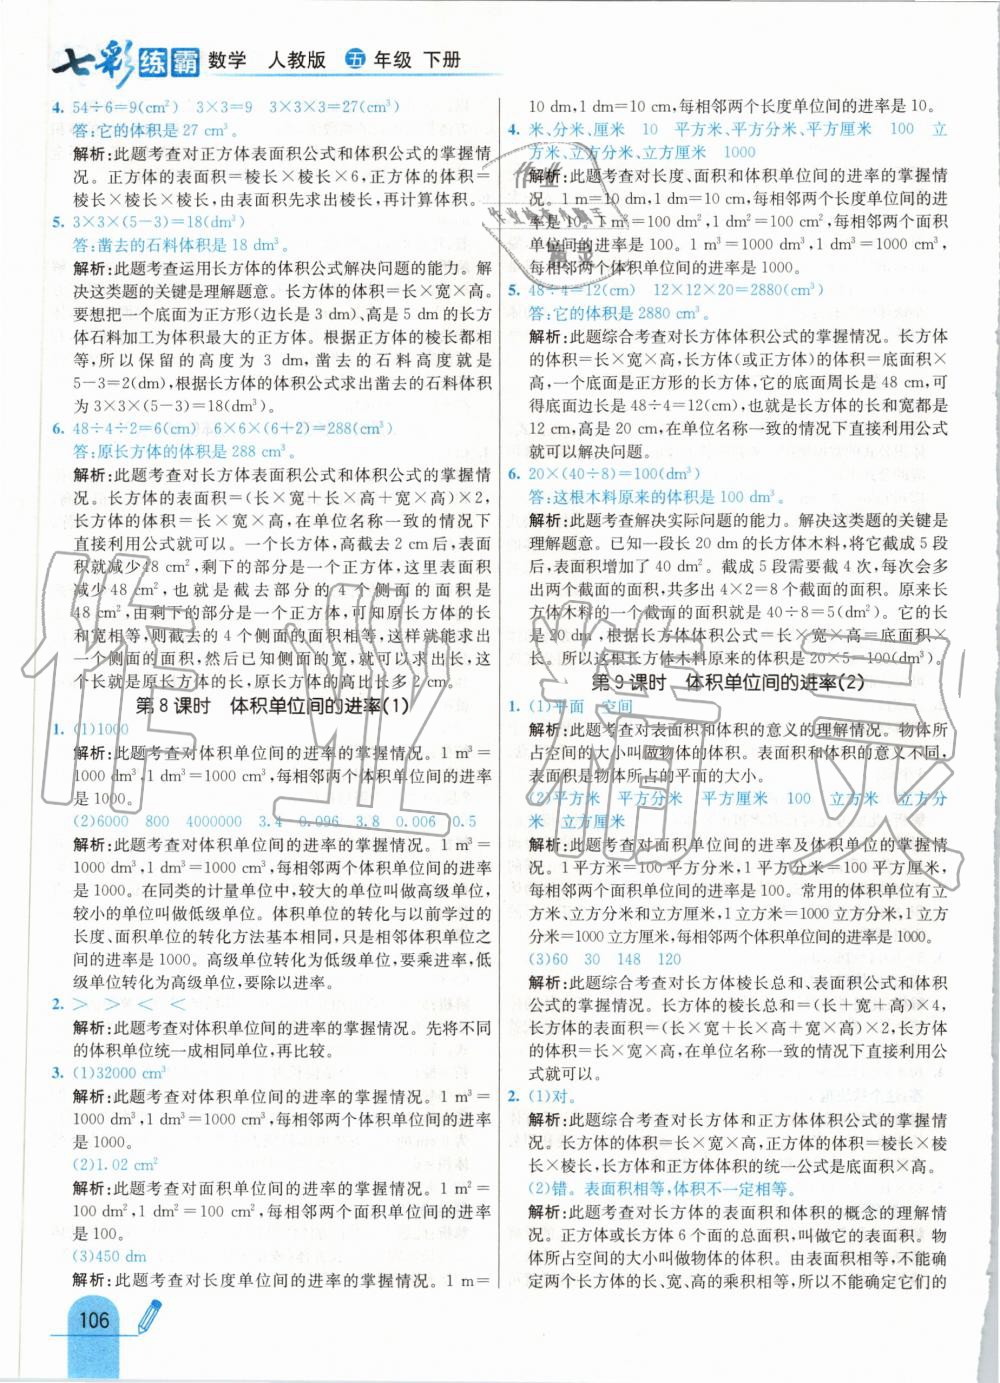 七彩练霸 数学 人教版 五年级 下册
4. 54÷6=9(cm²) 3×3=9 3×3×3=27(cm³)
答:它的体积是 27 cm³。
解析:此题考查对正方体表面积公式和体积公式的掌握情
况。正方体的表面积=棱长×棱长×6,正方体的体积=
棱长×棱长×棱长,由表面积先求出棱长,再计算体积。
5. 3×3×(5-3)=18(dm³)
答:凿去的石料体积是 18 dm³。
解析:此题考查运用长方体的体积公式解决问题的能力。解
决这类题的关键是理解题意。长方体的体积=长×宽×高。
要想把一个底面为正方形(边长是 3 dm)、高是 5 dm的长方
体石料加工为体积最大的正方体。根据正方体的棱长都相
等,所以保留的高度为 3 dm,凿去的石料高度就是
5-3=2(dm),根据长方体的体积公式求出凿去的石料体积
为 3×3×(5-3)=18(dm³)。
6. 48÷4÷2=6(cm) 6×6×(6+2)=288(cm³)
答:原长方体的体积是 288 cm³。
解析:此题考查对长方体表面积公式和体积公式的掌握情
况。长方体的表面积=(长×宽+长×高+宽×高)×2,
长方体的体积=长×宽×高,在单位名称一致的情况下
直接利用公式就可以。一个长方体,高截去 2 cm后,表面
积就减少48 cm²,剩下的部分是一个正方体,这里表面积
减少48 cm²,也就是截去部分的 4 个侧面的面积是
48 cm²,由剩下的部分是一个正方体,可知原长方体的长
和宽相等,则截去的 4 个侧面的面积相等,这样就能求出
一个侧面的面积,然后求出长方体的长,长也就是宽,这
个长就是原长方体的长,原长方体的高比长多 2 cm。
第 8 课时 体积单位间的进率(1)
1. (1)1000
解析:此题考查对体积单位间的进率的掌握情况。1 m³=
1000 dm³,1 dm³=1000 cm³,每相邻两个体积单位间的进率
是 1000。
(2)6000 800 4000000 3.4 0.096 3.8 0.006 0.5
解析:此题考查对体积单位间的进率的掌握情况。1 m³=
1000 dm³,1 dm³=1000 cm³,每相邻两个体积单位间的进率
是 1000。在同类的计量单位中,较大的单位叫做高级单位,
较小的单位叫做低级单位。体积单位的转化与以前学过的
长度、面积单位的转化方法基本相同,只是相邻体积单位之
间的进率是 1000。高级单位转化为低级单位,要乘进率,低
级单位转化为高级单位,要除以进率。
2. > > < <
解析:此题考查对体积单位间的进率的掌握情况。先将不同
的体积单位统一成相同单位,再比较。
3. (1)32000 cm³
解析:此题考查对体积单位间的进率的掌握情况。1 m³=
1000 dm³,1 dm³=1000 cm³,每相邻两个体积单位间的进率
是 1000。
(2)1.02 cm²
解析:此题考查对面积单位间的进率的掌握情况。1 m²=
100 dm²,1 dm²=100 cm²,每相邻两个面积单位间的进率
是 100。
(3)450 dm
解析:此题考查对长度单位间的进率的掌握情况。1 m=
10 dm,1 dm=10 cm,每相邻两个长度单位间的进率是 10。
4. 米、分米、厘米 10 平方米、平方分米、平方厘米 100 立
方米、立方分米、立方厘米 1000
解析:此题考查对长度、面积和体积单位间的进率的掌握情
况。1 m=10 dm,1 dm=10 cm,每相邻两个长度单位间的进
率是 10。1 m²=100 dm²,1 dm²=100 cm²,每相邻两个面积
单位间的进率是 100。1 m³=1000 dm³,1 dm³=1000 cm³,
每相邻两个体积单位间的进率是 1000。
5. 48÷4=12(cm) 12×12×20=2880(cm³)
答:它的体积是 2880 cm³。
解析:此题综合考查对长方体体积公式的掌握情况。长方体
的体积=长×宽×高,长方体(或正方体)的体积=底面积×
高,一个底面是正方形的长方体,它的底面周长是 48 cm,可
得底面边长是 48÷4=12(cm),也就是长方体的长和宽都是
12 cm,高是 20 cm,在单位名称一致的情况下直接利用公式
就可以解决问题。
6. 20×(40÷8)=100(dm³)
答:这根木料原来的体积是 100 dm³。
解析:此题考查解决实际问题的能力。解决这类题的关键是
理解题意。已知一段长 20 dm的长方体木料,将它截成 5 段
后,表面积增加了 40 dm²。截成 5 段需要截 4 次,每次会多
出两个截面的面积,共多出 4×2=8 个截面的面积。原来长
方体木料的一个截面的面积就是 40÷8=5(dm²)。它的长
是 20 dm,根据长方体体积公式=长×宽×高=底面积×
长。所以这根长方体木料原来的体积是 20×5=100(dm³)。
第 9 课时 体积单位间的进率(2)
1. (1)平面 空间
解析:此题考查对表面积和体积的意义的理解情况。物体所
占空间的大小叫做物体的体积。表面积和体积的意义不同,
表面积是物体所占的平面的大小。
(2)平方米 平方分米 平方厘米 100 立方米 立方分
米 立方厘米
解析:此题考查对面积单位间的进率及体积单位的掌握情
况。1 平方米=100 平方分米,1 平方分米=100 平方厘米,
每相邻两个面积单位间的进率是 100。常用的体积单位有立
方米、立方分米和立方厘米,1 立方米=1000 立方分米,1 立方
分米=1000 立方厘米,每相邻两个体积单位间的进率是 1000。
(3)60 30 148 120
解析:此题考查对长方体棱长总和、表面积公式和体积
公式的掌握情况。长方体的棱长总和=(长+宽+高)×4,
长方体的表面积=(长×宽+长×高+宽×高)×2,长方体
的体积=长×宽×高,在单位名称一致的情况下直接利用公
式就可以。
2. (1)对。
解析:此题综合考查对长方体和正方体体积公式的掌握情
况。长方体的体积=长×宽×高,正方体的体积=棱长×棱
长×棱长,长方体和正方体体积的统一公式是底面积×高。
(2)错。表面积相等,体积不一定相等。
解析:此题考查对长方体的表面积和体积的概念的理解情
况。正方体或长方体 6 个面的总面积,叫做它的表面积。物
体所占空间的大小叫做物体的体积。由表面积相等,不能确
定两个长方体的长、宽、高的乘积相等,所以不能确定它们的
106
作业精灵